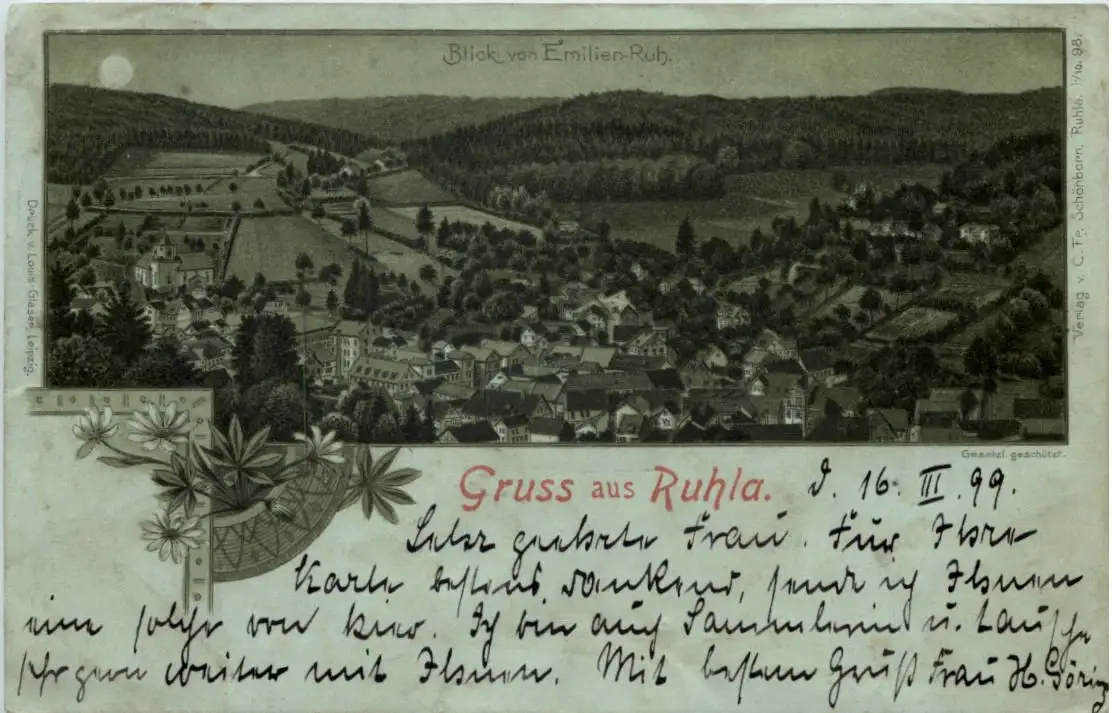 Blick von Emilien-Ruh.
Druck v. Louis Glaser, Leipzig.
Verlag v. C. Fr. Schönborn, Ruhla. 11/10. 98.
Gesetzl. geschützt.
Gruss aus Ruhla. d. 16. III. 99.
Sehr geehrte Frau. Für Ihre
Karte bestens dankend, sende ich Ihnen
eine solche von hier. Ich bin auch Sammlerin u. tausche
sehr gern weiter mit Ihnen. Mit bestem Gruß Frau H. Göring